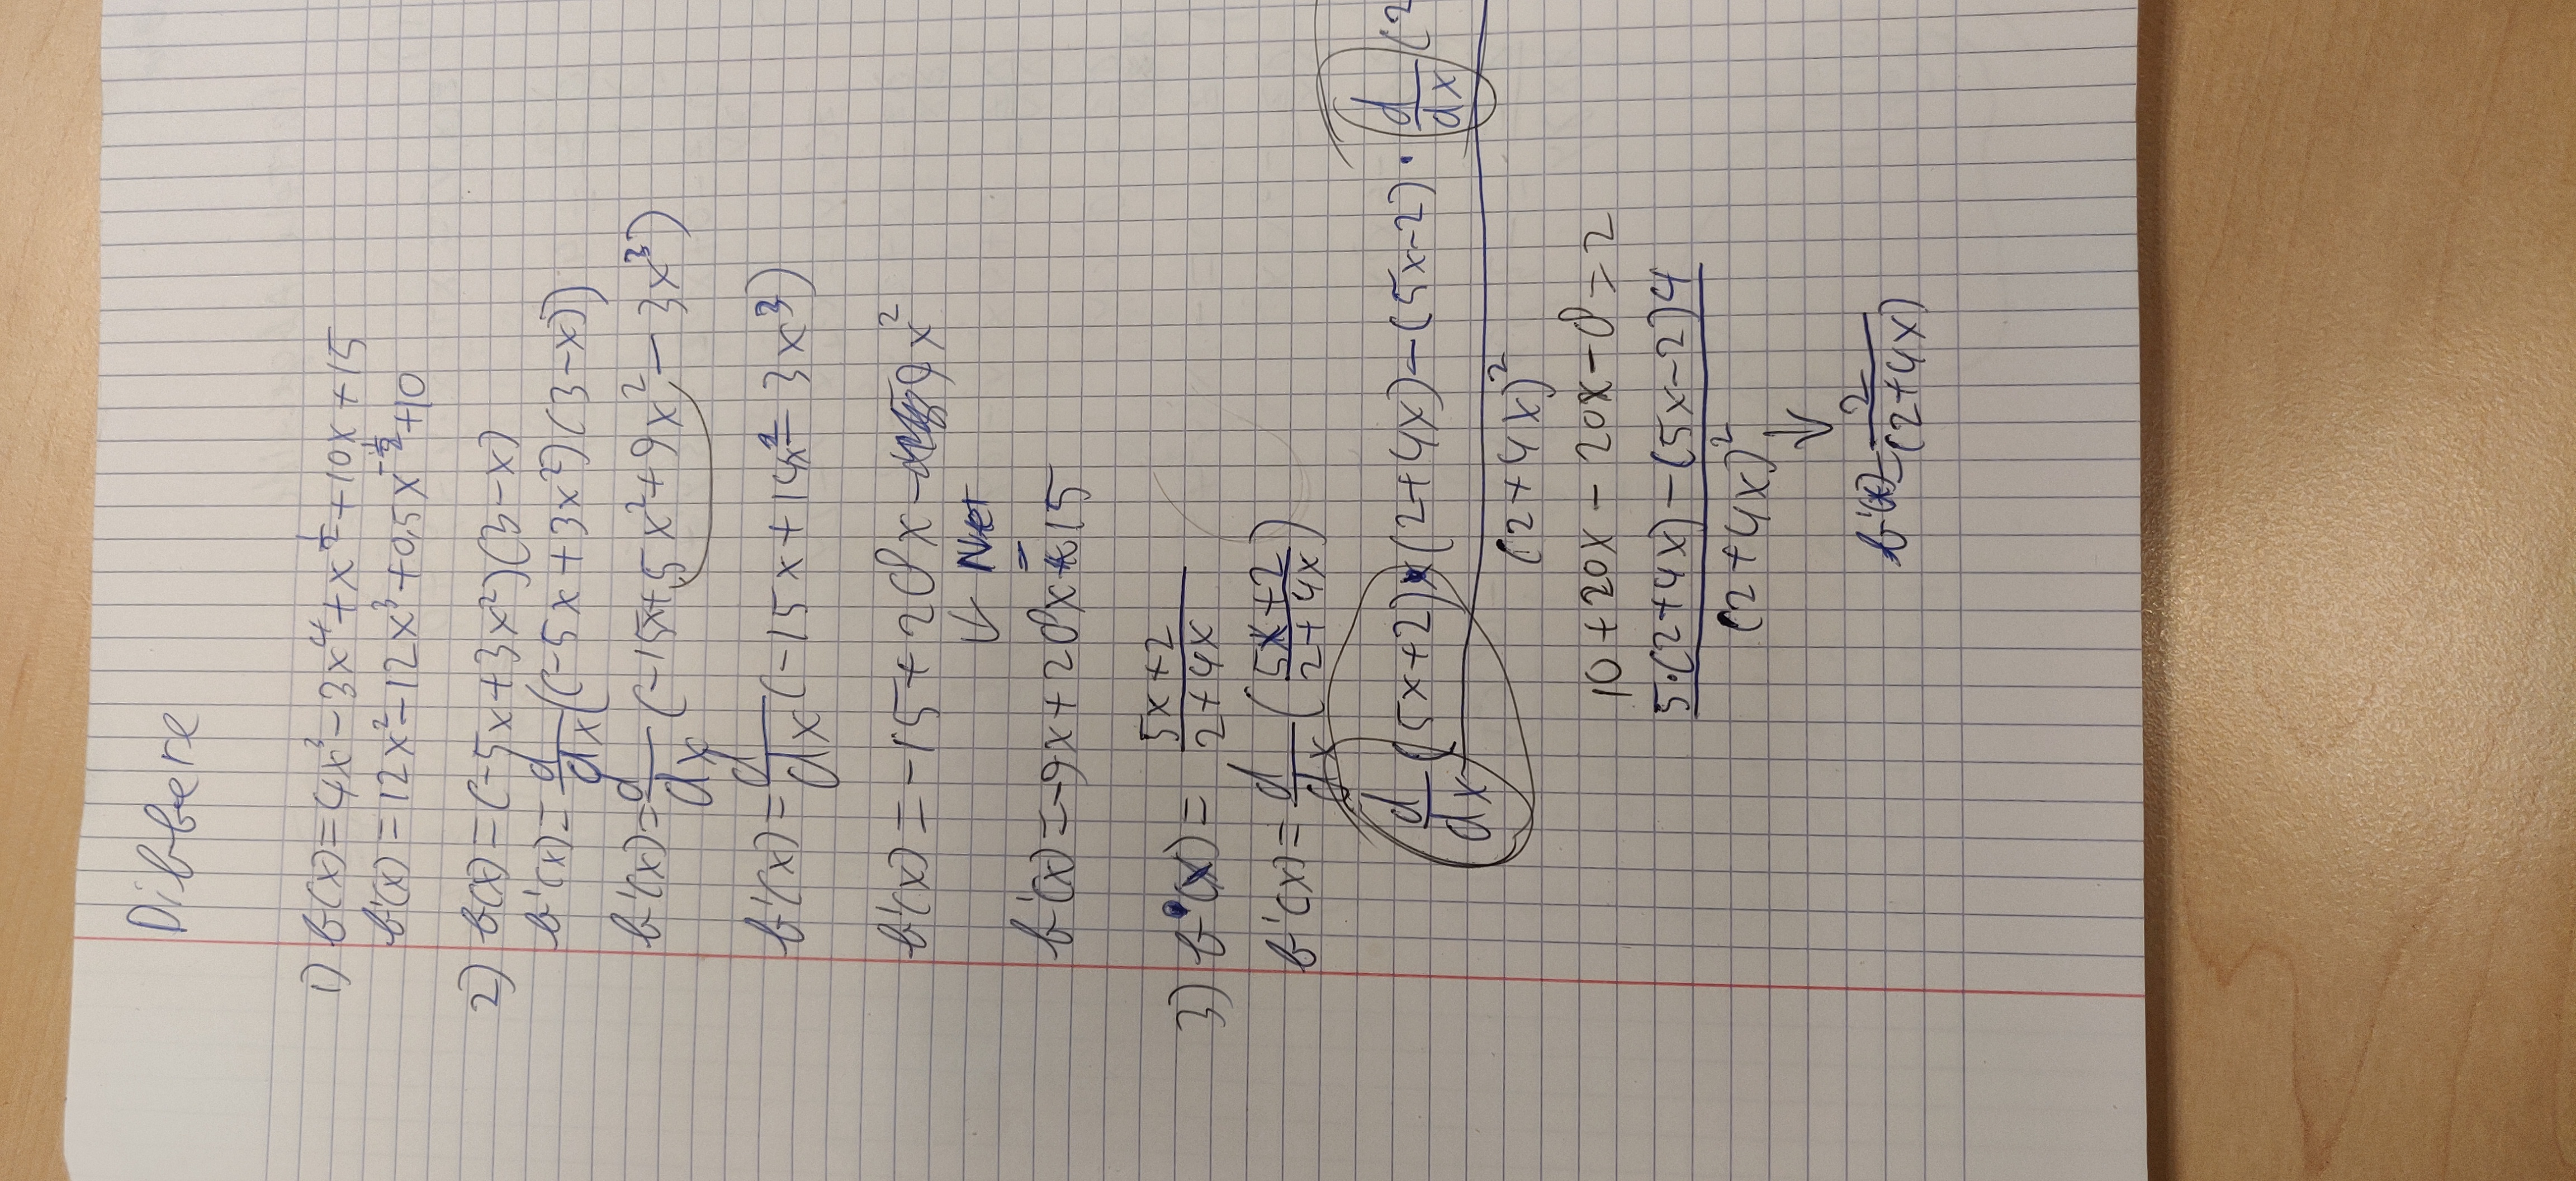 Differe
1) f(x) = 4x³ - 3x⁴ + x^½ + 10x + 15
f'(x) = 12x² - 12x³ + 0,5x^-½ + 10
2) f(x) = (-5x + 3x²)(3 - x)
f'(x) = d/dx ((-5x + 3x²)(3 - x))
f'(x) = d/dx (-15x + 5x² + 9x² - 3x³)
f'(x) = d/dx (-15x + 14x² - 3x³)
f'(x) = -15 + 28x - 9x²
↓ Net
f'(x) = -9x + 28x - 15
3) f(x) = (5x + 2)/(2 + 4x)
f'(x) = d/dx ((5x + 2)/(2 + 4x))
(d/dx (5x + 2) · (2 + 4x) - (5x - 2) · d/dx (2
(2 + 4x)²
10 + 20x - 20x - 8 = 2
5·(2 + 4x) - (5x - 2)4
(2 + 4x)²
↓
f'(x) = 2/(2 + 4x)